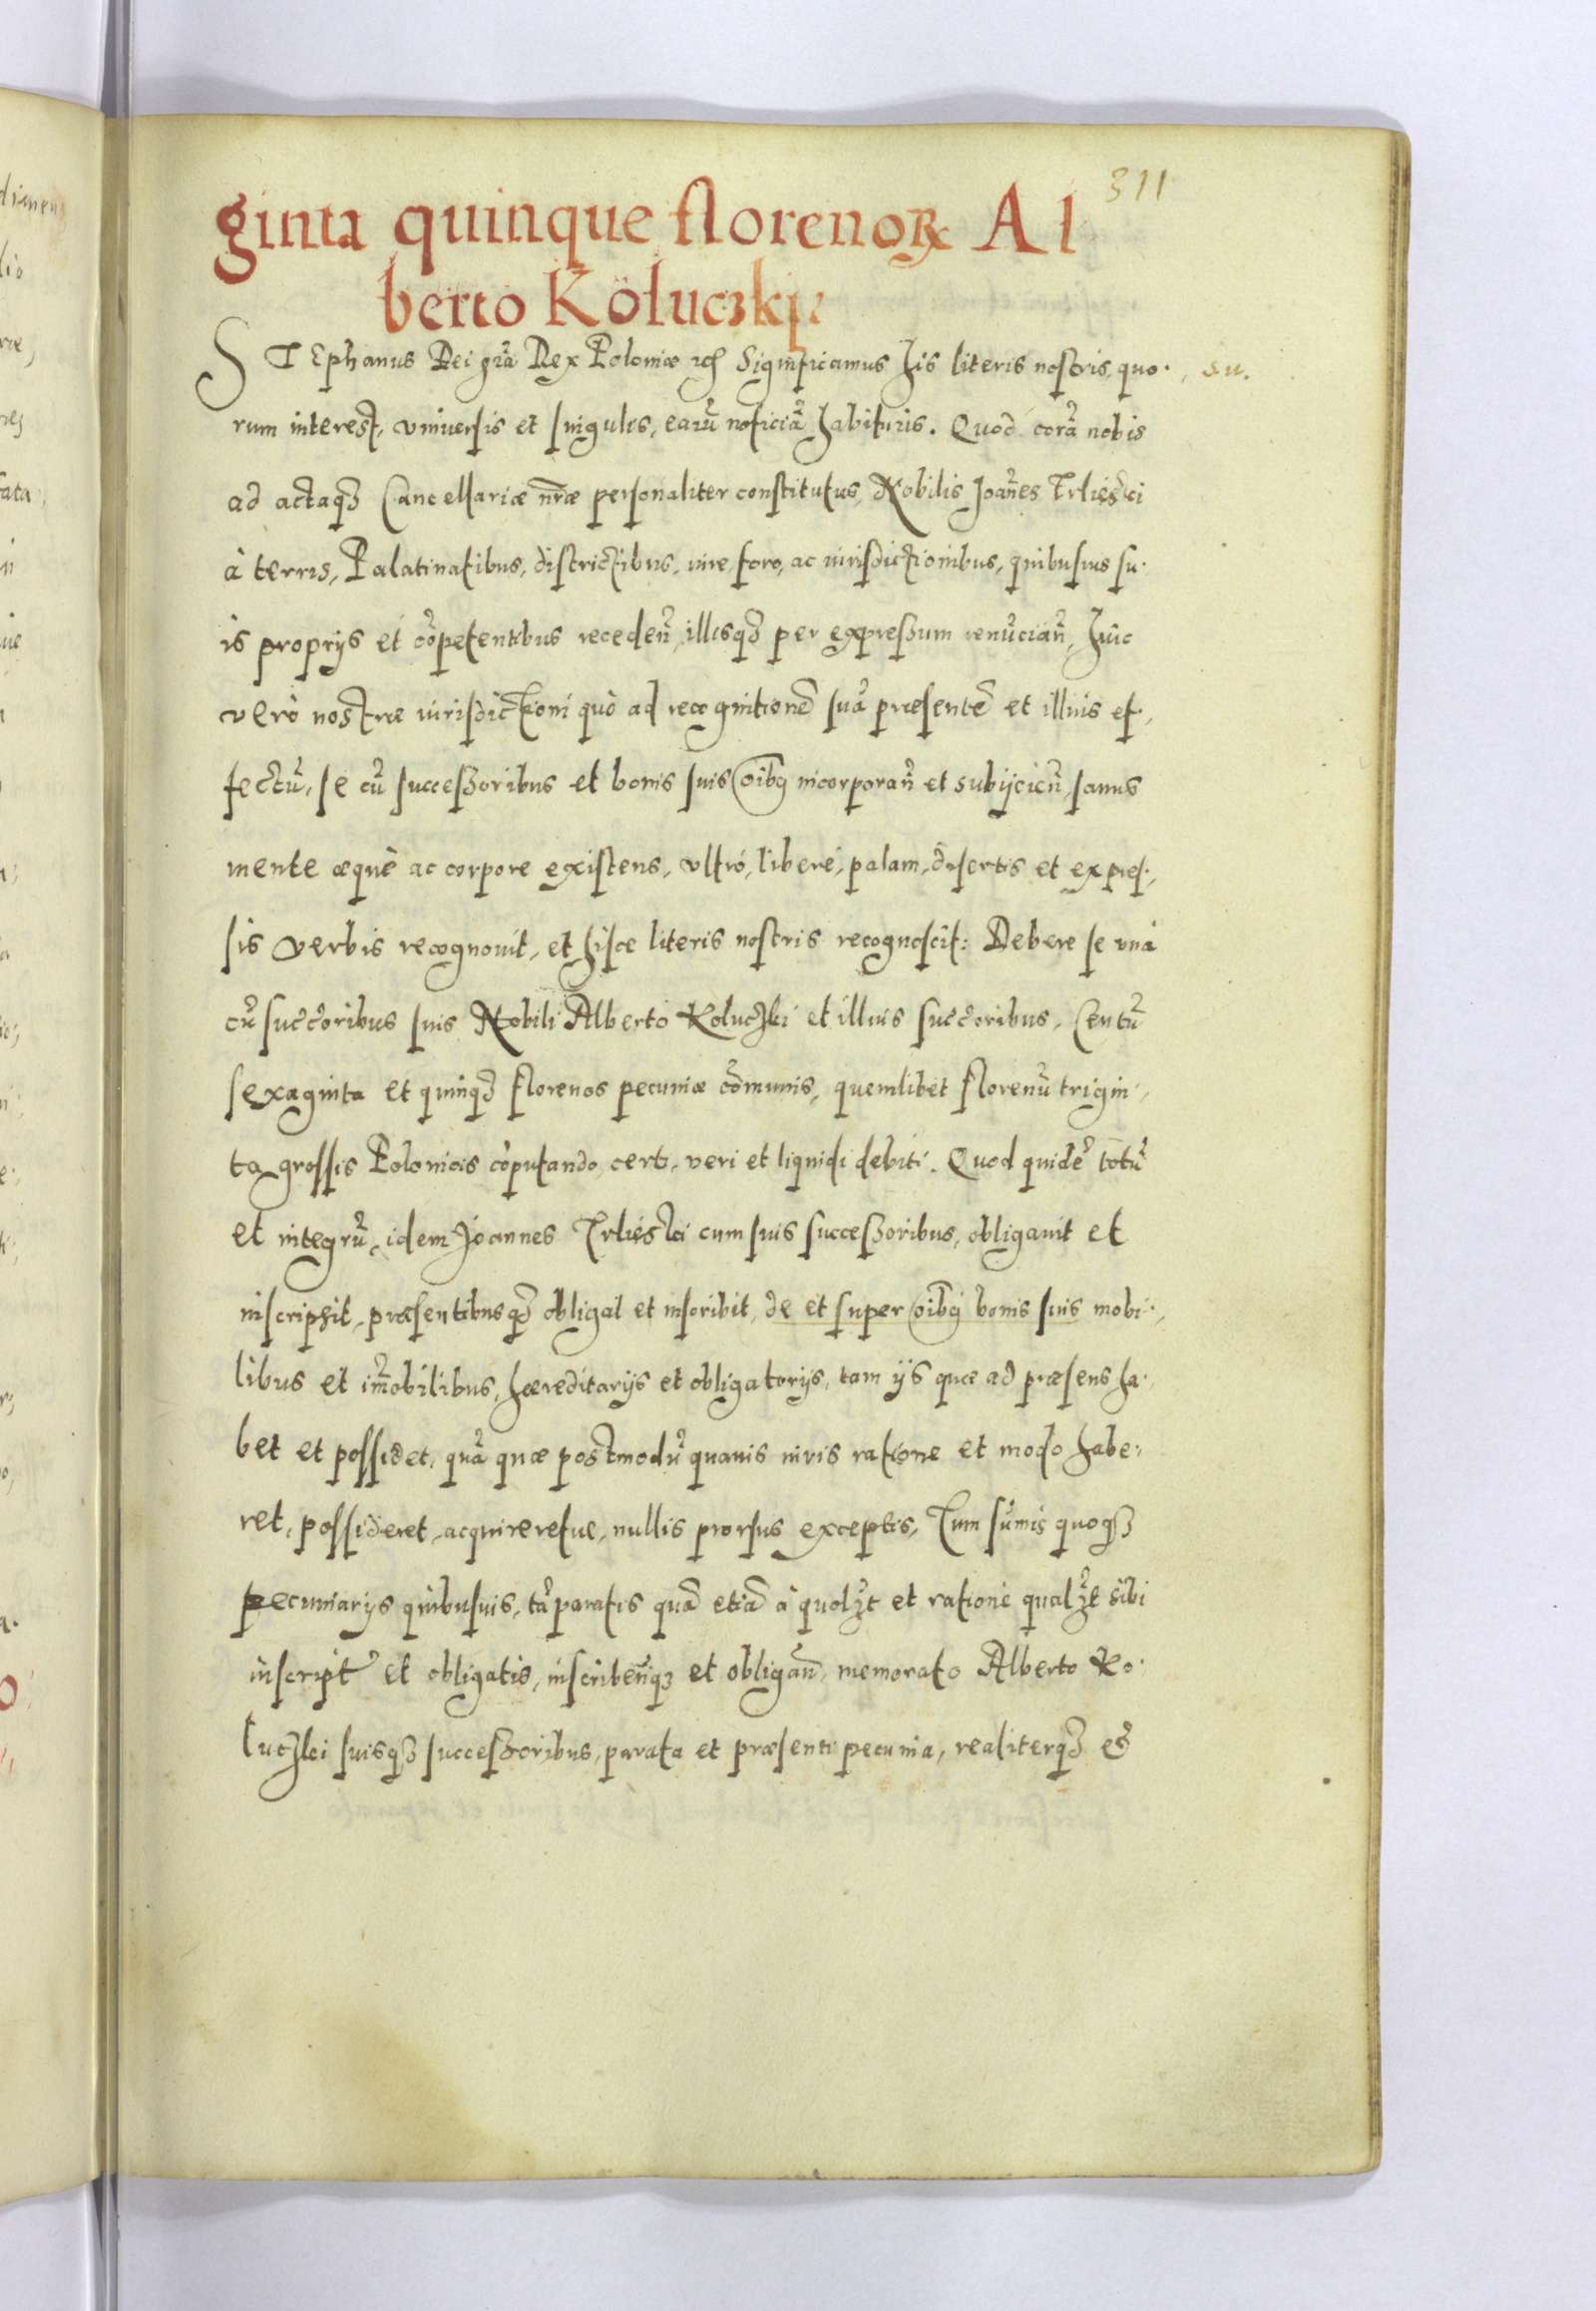 311
ginta quinque florenoꝝ Al
berto Koluczki.
STEphanus Dei gr̃a Rex Poloniæ etc̃ Significamus his literis nostris, quo-
su.
rum interest, vniuersis et singulis, earũ noticiã habituris. Quod corã nobis
ad actaq₃ Cancellariæ nr̃æ personaliter constitutus, Nobilis Joañes
à terris, Palatinatibus, districtibus, iure foro, ac iurisdictionibus, quibusuis su-
is proprijs et cõpetentibus receden̄, illisq₃ per expressum renũcian̄, huic
verò nostræ iurisdictioni quò ad recognitionẽ suã præsentẽ et illius ef-
fectũ, se cũ successoribus et bonis suis oĩbq incorporañ et subijcień, sanus
mente æquè ac corpore existens, vltró, liberé, palam, disertis et expres-
sis verbis recognouit, et hisce literis nostris recognoscit: Debere se vná
cũ succ̃oribus suis Nobili Alberto Koluczki et illius succ̃oribus, Centũ
sexaginta et quinq₃ florenos pecuniæ cõmunis, quemlibet florenũ trigin-
ta grossis Polonicis cõputando, certi, veri et liquidi debiti. Quod quidẽ totũ
et integrũ, idem Joannes cum suis successoribus, obligauit et
inscripsit, præsentibusq₃ obligat et inscribit, de et super oĩbq bonis suis mobi-
libus et im̃obilibus, hæreditarijs et obligatorijs, tam ijs quæ ad præsens ha-
bet et possidet, quã quæ postmodũ quauis iuris ratione et modo habe-
ret, possideret, acquireretue, nullis prorsus exceptis, Tum sum̃is quoq₃
pecuniarijs quibusuis, tã paratis quã etiã à quolꝫt et ratione qualꝫt sibi
inscript̃ et obligatis, inscribeñq₃ et obligañ, memorato Alberto Ko-
luczki suisq₃ successoribus, parata et præsenti pecunia, realiterq₃ et